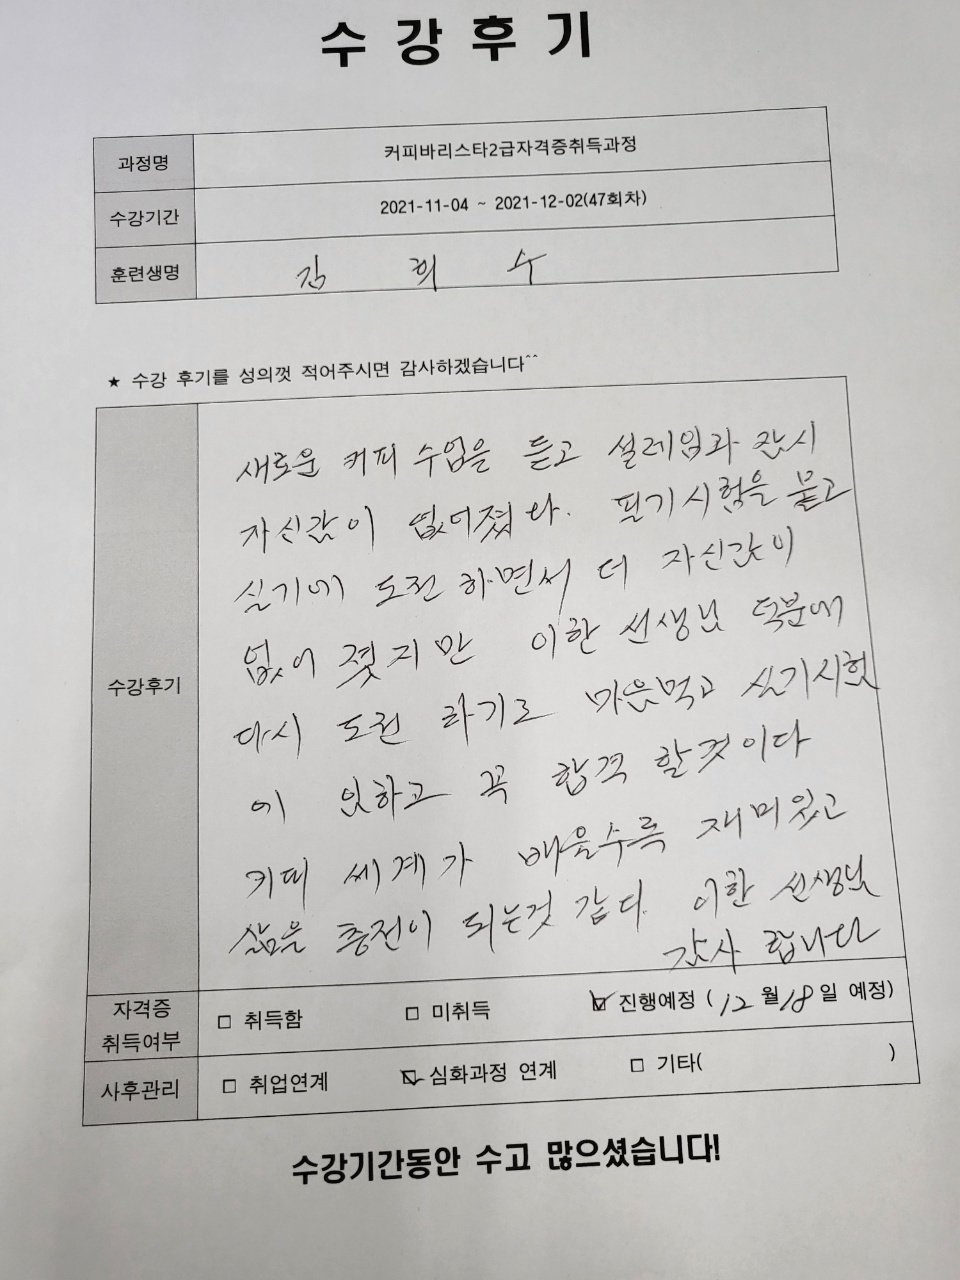 수강후기
과정명 커피바리스타2급자격증취득과정
수강기간 2021-11-04 ~ 2021-12-02(47회차)
훈련생명 김 희 수
★ 수강 후기를 성의껏 적어주시면 감사하겠습니다^^
수강후기
새로운 커피 수업을 듣고 설레임과 잠시
자신감이 없어졌다. 필기시험을 붙고
실기에 도전하면서 더 자신감이
없어 졌지만 이한 선생님 덕분에
다시 도전 하기로 마음먹고 실기시험
에 임하고 꼭 합격 할것이다
커피 세계가 배울수록 재미있고
삶을 충전이 되는것 같다. 이한 선생님
감사 합니다
자격증 취득여부 □ 취득함 □ 미취득 ☑ 진행예정 (12월 18일 예정)
사후관리 □ 취업연계 ☑ 심화과정 연계 □ 기타( )
수강기간동안 수고 많으셨습니다!